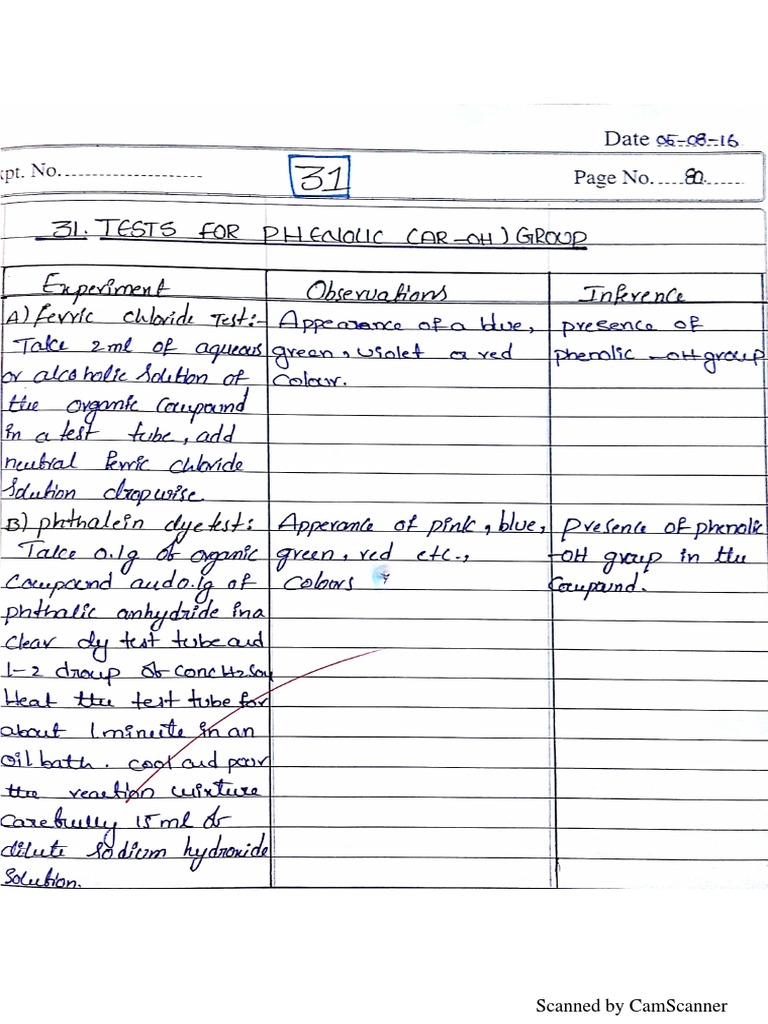 Date 05-08-16
xpt. No.
31
Page No. 80
31. TESTS FOR PHENOLIC (AR-OH) GROUP
Experiment
Observations
Inference
A) Ferric chloride Test:-
Take 2ml of aqueous
or alcoholic Solution of
the organic Compound
in a test tube, add
neutral ferric chloride
Solution dropwise
Appearance of a blue,
green, violet or red
Colour.
presence of
phenolic -OH group
B) phthalein dye test:
Take 0.1g of organic
Compound and 0.1g of
phthalic anhydride in a
clear dy test tube and
1-2 droup of Conc H2SO4
Heat the test tube for
about 1 minute in an
oil bath. cool and poor
the reaction mixture
Carefully 15 ml of
dilute Sodium hydroxide
Solution.
Apperance of pink, blue,
green, red etc.,
Colours
Presence of phenolic
-OH group in the
Compound.
Scanned by CamScanner